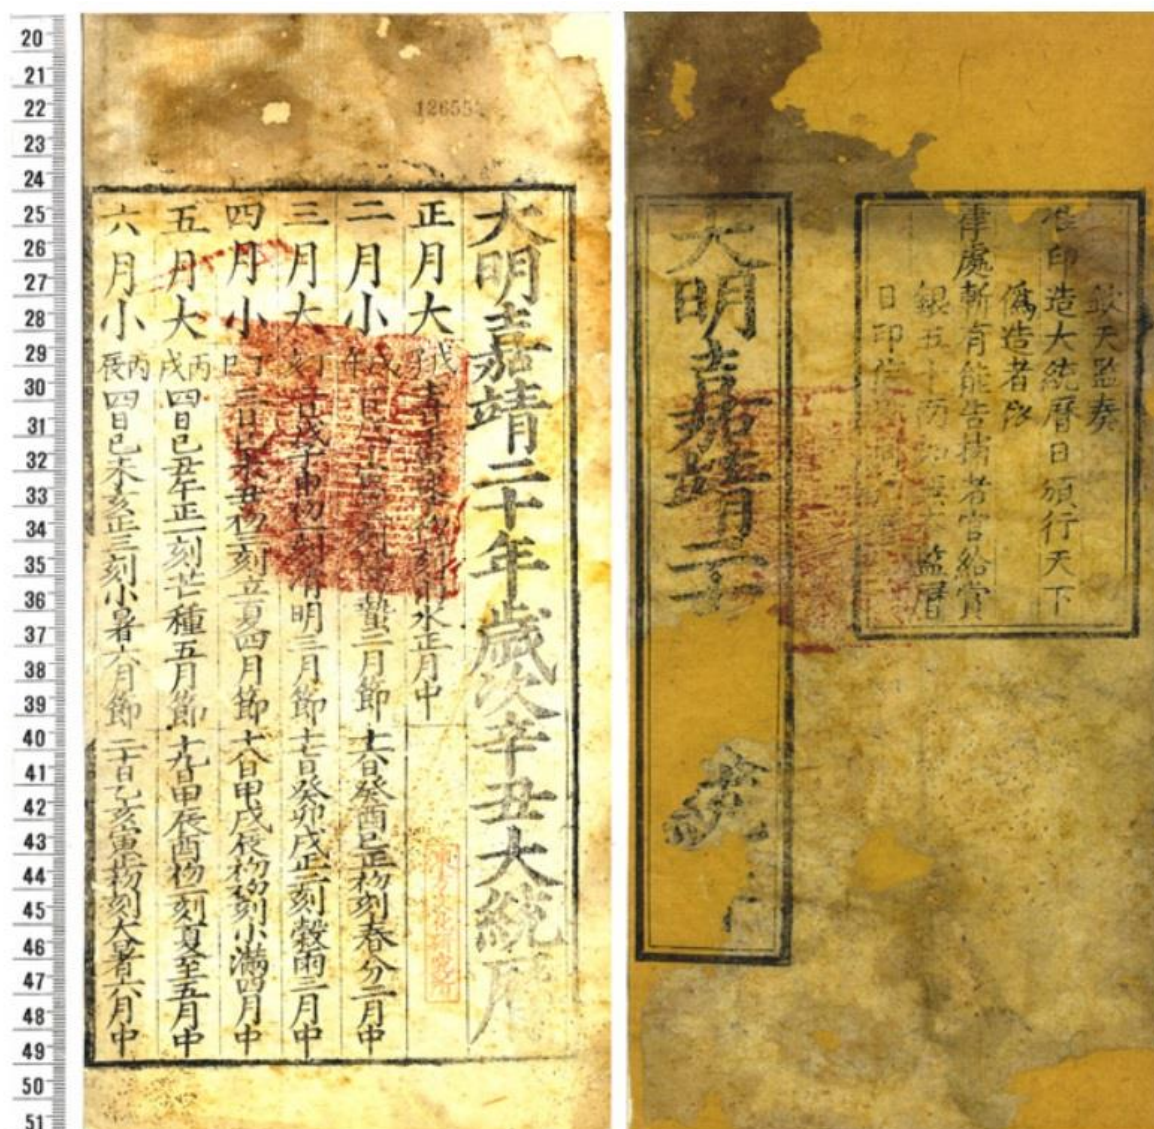 20
21
22
23
24
25
26
27
28
29
30
31
32
33
34
35
36
37
38
39
40
41
42
43
44
45
46
47
48
49
50
51
大明嘉靖二十年歲次辛丑大統曆
正月大 水正月中
二月小 戊午 蟄二月節 十六日癸酉巳正初刻春分二月中
三月大 丁亥 清明三月節 十七日癸卯戌正二刻穀雨三月中
四月小 丁巳 三日己未丑初三刻立夏四月節 十八日甲戌辰初初刻小滿四月中
五月大 丙戌 四日己丑午正一刻芒種五月節 十九日甲辰酉初一刻夏至五月中
六月小 丙辰 四日己未亥正三刻小暑六月節 二十日乙亥寅正初刻大暑六月中
欽天監奏
准印造大統曆日頒行天下
僞造者依
律處斬有能告捕者官給賞
銀五十兩如無本監曆
日印信同
大明嘉靖二十